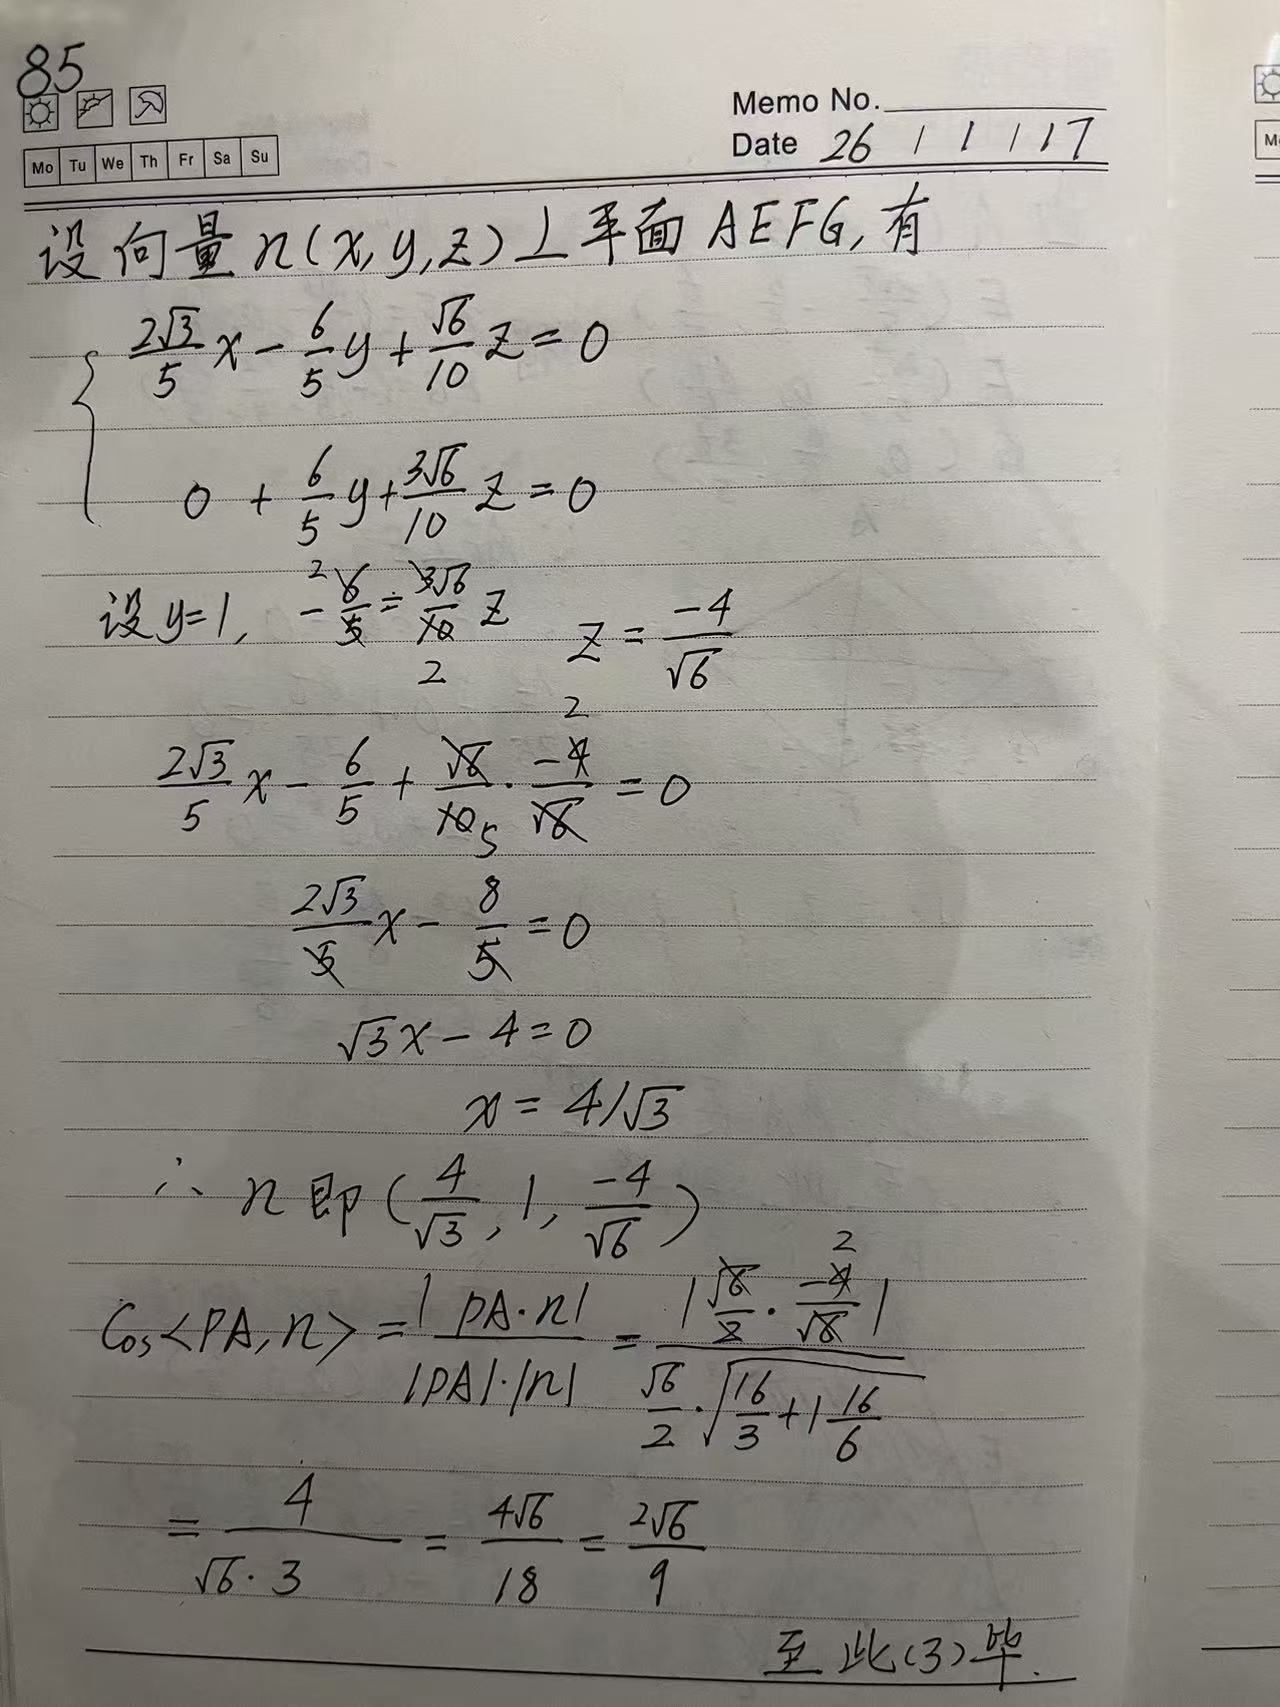 85
Memo No.
Date 26 / 1 / 17
Mo Tu We Th Fr Sa Su
设向量 n(x,y,z)⊥平面 AEFG,有
2√3/5 x - 6/5 y + √6/10 z = 0
0 + 6/5 y + 3√6/10 z = 0
设 y=1, -6/5 = 3√6/10 z z = -4/√6
2 2
2√3/5 x - 6/5 + √6/10 · -4/√6 = 0
5 2
2√3/5 x - 8/5 = 0
√3x - 4 = 0
x = 4/√3
∴ n 即 (4/√3, 1, -4/√6)
Cos<PA,n> = |PA·n| / |PA|·|n| = |√6/2 · -4/√6| / √6/2 · √16/3+1 16/6
2
= 4/√6·3 = 4√6/18 = 2√6/9
至此(3)毕.